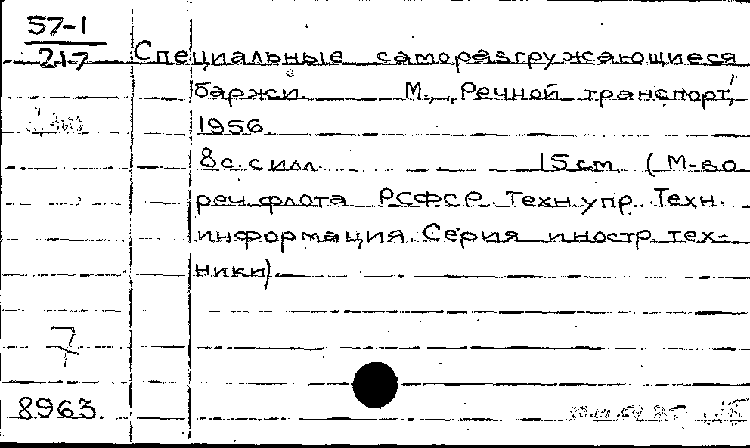 57-1
217
Специальные саморазгружающиеся
баржи. М., „Речной транспорт,"
1956.
8 с. с илл. 15 см. (М-во
реч. флота РСФСР. Техн. упр. Техн.
информация. Серия иностр. тех-
ники).
7
8963.